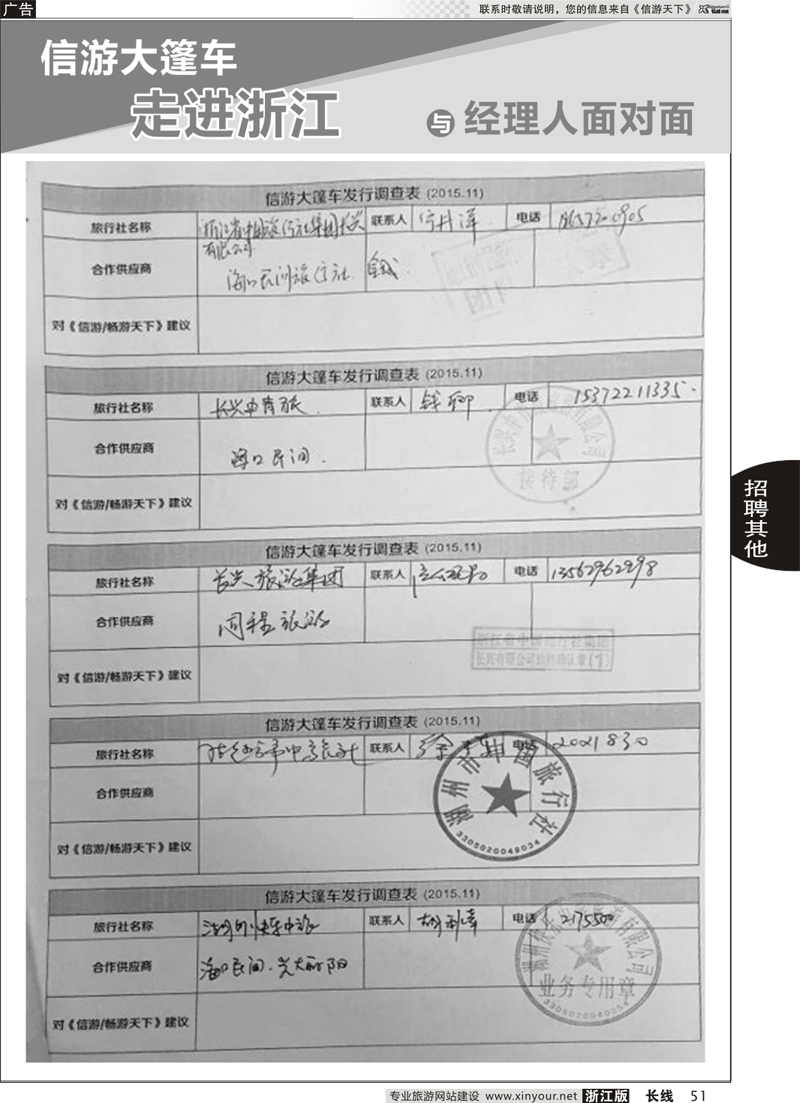 广告
联系时敬请说明，您的信息来自《信游天下》
信游大篷车
走进浙江
与经理人面对面
信游大篷车发行调查表 (2015.11)
旅行社名称 联系人 电话
有限公司
合作供应商 海口民间旅行社
对《信游/畅游天下》建议
信游大篷车发行调查表 (2015.11)
旅行社名称 长兴中青旅 联系人 电话 15372211335
合作供应商 海口民间
接待部
对《信游/畅游天下》建议
信游大篷车发行调查表 (2015.11)
旅行社名称 长兴旅游集团 联系人 电话 13562962998
合作供应商 同程旅游
对《信游/畅游天下》建议
信游大篷车发行调查表 (2015.11)
旅行社名称 联系人 电话 2021830
合作供应商
湖州市中国旅行社
3305020049034
对《信游/畅游天下》建议
信游大篷车发行调查表 (2015.11)
旅行社名称 联系人 电话 2175500
合作供应商 海口民间
业务专用章
对《信游/畅游天下》建议
招聘其他
专业旅游网站建设 www.xinyour.net 浙江版 长线 51